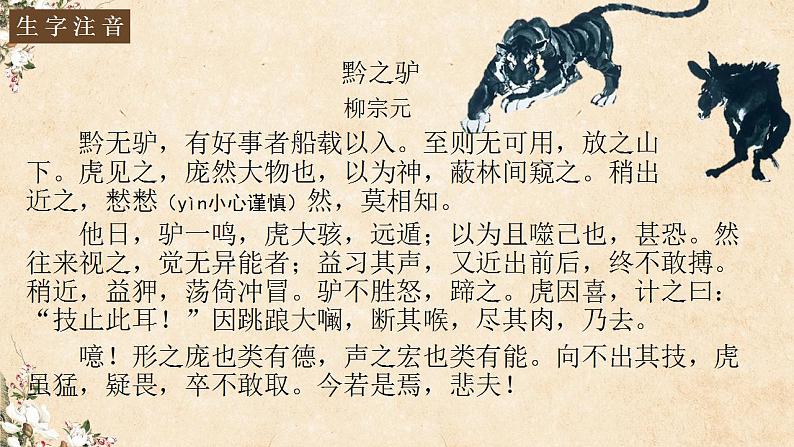 生字注音
黔之驴
柳宗元
黔无驴，有好事者船载以入。至则无可用，放之山
下。虎见之，庞然大物也，以为神，蔽林间窥之。稍出
近之，慭慭（yìn小心谨慎）然，莫相知。
他日，驴一鸣，虎大骇，远遁；以为且噬己也，甚恐。然
往来视之，觉无异能者；益习其声，又近出前后，终不敢搏。
稍近，益狎，荡倚冲冒。驴不胜怒，蹄之。虎因喜，计之曰：
“技止此耳！”因跳踉大㘎，断其喉，尽其肉，乃去。
噫！形之庞也类有德，声之宏也类有能。向不出其技，虎
虽猛，疑畏，卒不敢取。今若是焉，悲夫！